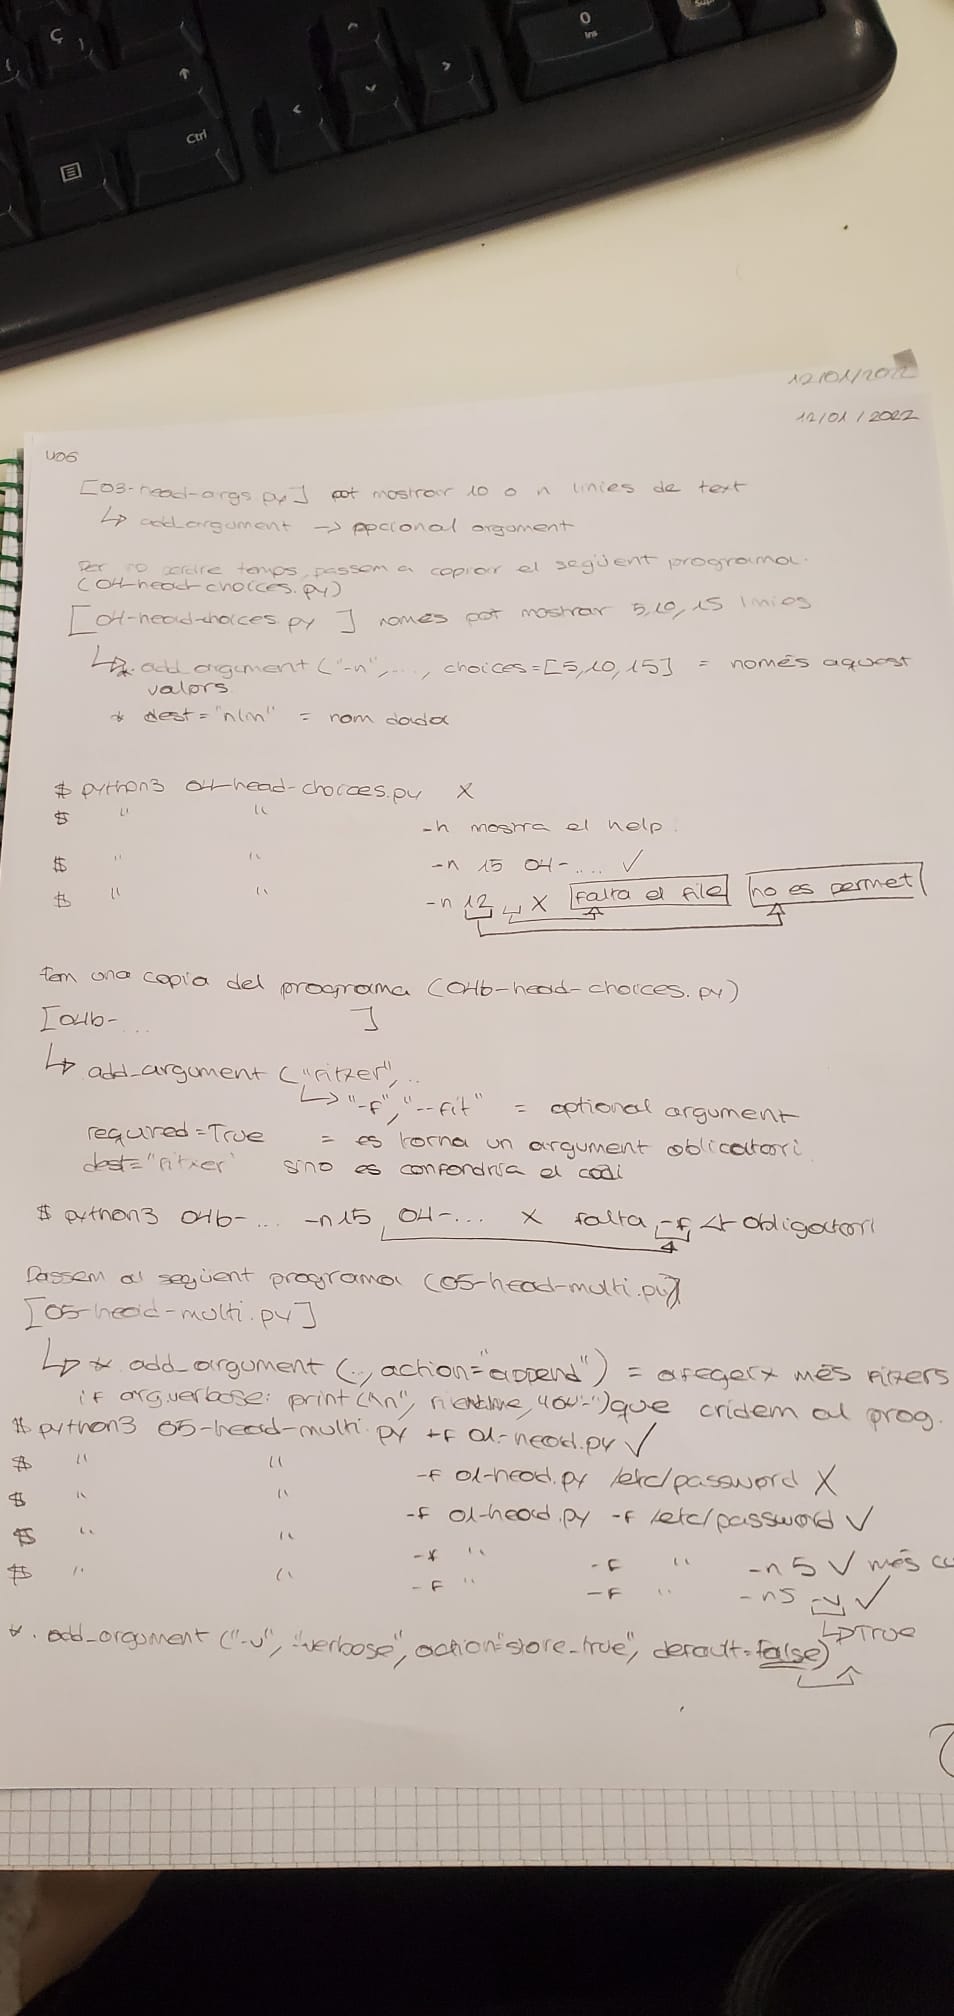 Ç
Ctrl
0
Ins
Supr
12/01/2022
12/01/2022
U06
[03-head-args.py] pot mostrar 10 o n línies de text
↳ add_argument → opcional argument
Per no perdre temps, passem a copiar el següent programa.
(04-head-choices.py)
[04-head-choices.py ] només pot mostrar 5,10,15 línies
↳ * .add_argument ("-n",..., choices=[5,10,15] = només aquest
valors
* dest="nlin" = nom dada
$ python3 04-head-choices.py X
$ " " -h mostra el help.
$ " " -n 15 04-.... ✓
$ " " -n 12 X falta el file no es permet
Fem una copia del programa (04b-head-choices.py)
[04b-... ]
↳ add_argument ("fitxer",..
↳ "-f","--fit" = optional argument
required=True = es torna un argument obligatori.
dest="fitxer" sino es confondria el codi
$ python3 04b-... -n15 04-... X falta -f obligatori
Passem al següent programa (05-head-multi.py)
[05-head-multi.py]
↳ * add_argument (.., action="append") = afegeix més fitxers
if arg.verbose: print("\n", ) que cridem al prog.
$ python3 05-head-multi.py -f 01-head.py ✓
$ " " -f 01-head.py /etc/password X
$ " " -f 01-head.py -f /etc/password ✓
$ " " -f " -f " -n 5 ✓ més
$ " " -f " -f " -n5 -v ✓
↳ True
* . add_argument ("-v", "--verbose", action="store_true", default=false)